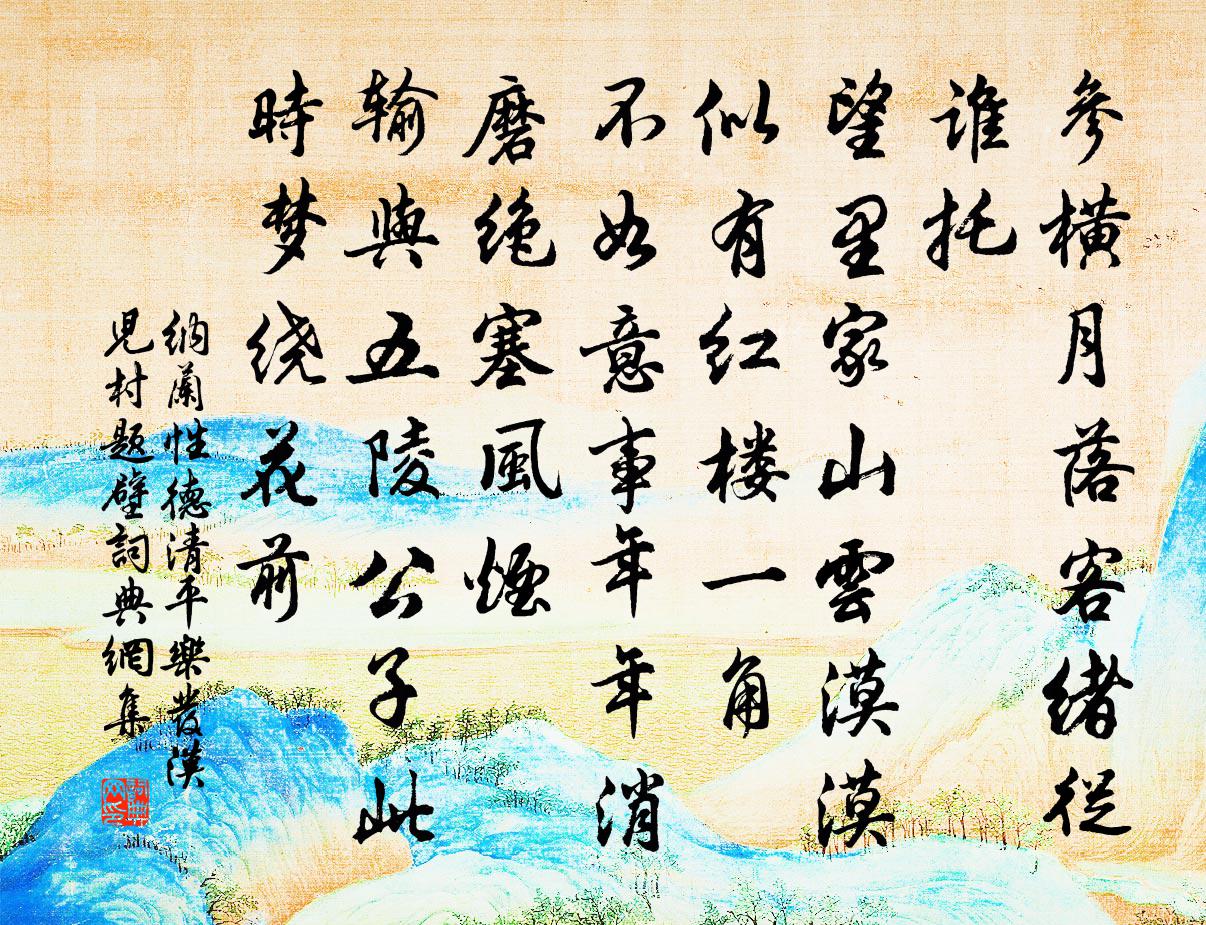 參橫月落客緒從
誰托
望里家山雲漠漠
似有红楼一角
不如意事年年消
磨绝塞風煙
输與五陵公子此
時梦绕花前
納蘭性德清平樂發漢
兒村题壁詞典網集